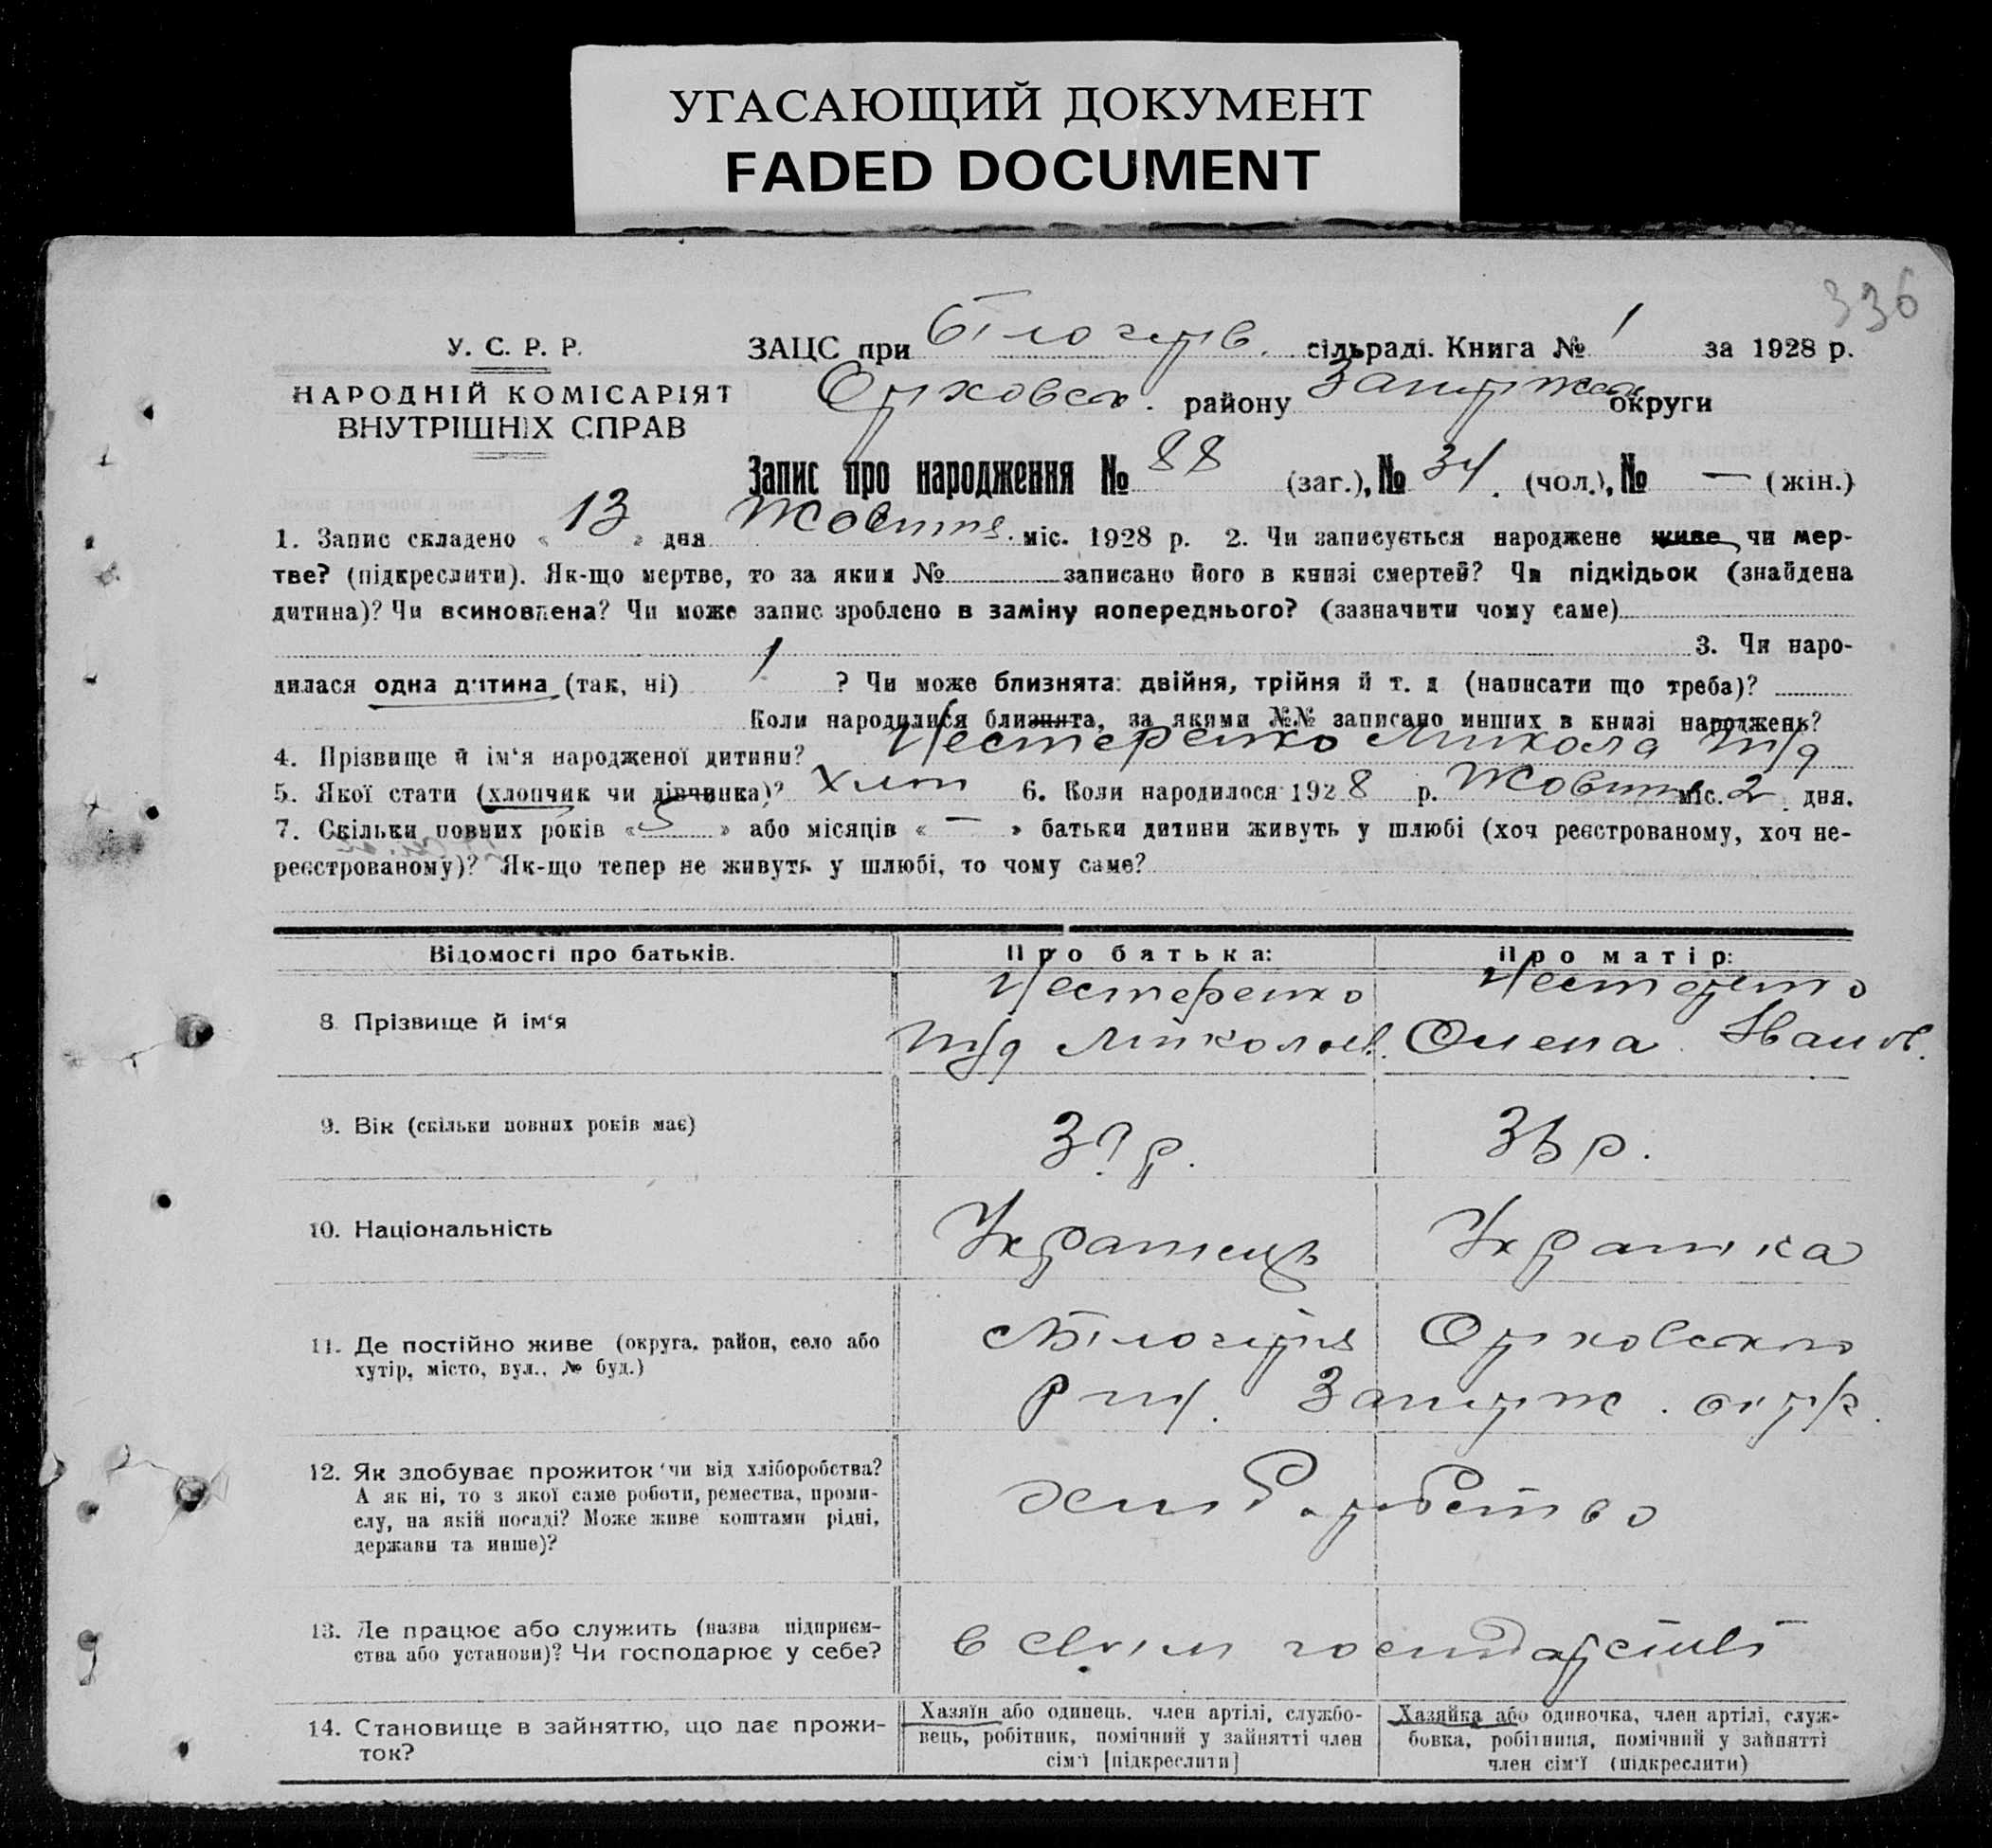 УГАСАЮЩИЙ ДОКУМЕНТ
FADED DOCUMENT
336
У. С. Р. Р.
НАРОДНІЙ КОМІСАРІЯТ
ВНУТРІШНІХ СПРАВ
ЗАЦС при Білогірів. сільраді. Книга № 1 за 1928 р.
району округи
Запис про народження № 88 (заг.), № 34. (чол.), № — (жін.)
1. Запис складено « 13 » дня Жовтня. міс. 1928 р. 2. Чи записується народжене живе, чи мер-
тве? (підкреслити). Як-що мертве, то за яким № записано його в книзі смертей? Чи підкідьок (знайдена
дитина)? Чи всиновлена? Чи може запис зроблено в заміну попереднього? (зазначити чому саме)
3. Чи наро-
дилася одна дитина (так, ні) 1 ? Чи може близнята: двійня, трійня й т. д (написати що треба)?
Коли народилися близнята, за якими №№ записано инших в книзі народжень?
4. Прізвище й ім‘я народженої дитини? Нестеренко Микола
5. Якої стати (хлопчик чи дівчинка)? Хлоп 6. Коли народилося 1928 р. Жовтня міс. 2 дня.
7. Скільки повних років « 5 » або місяців « — » батьки дитини живуть у шлюбі (хоч реєстрованому, хоч не-
реєстрованому)? Як-що тепер не живуть у шлюбі, то чому саме?
Відомості про батьків. Про батька: Про матір:
Нестеренко Нестеренко
8. Прізвище й ім‘я
Миколаєв. Олена Іванов.
9. Вік (скільки повних років має) 3? р. 33 р.
10. Національність Українець Українка
11. Де постійно живе (округа, район, село або
хутір, місто, вул., № буд.)
с Білогірья Оріховського
рай. Запоріж. окр.
12. Як здобуває прожиток чи від хліборобства?
А як ні, то з якої саме роботи, ремества, проми-
слу, на якій посаді? Може живе коштами рідні,
держави та инше)?
хліборобство
13. Де працює або служить (назва підприєм-
ства або установи)? Чи господарює у себе?
в своїм господарстві
14. Становище в зайняттю, що дає прожи-
ток?
Хазяїн або одинець, член артілі, службо-
вець, робітник, помічний у зайнятті член
сім‘ї [підкреслити]
Хазяйка або одиночка, член артілі, служ-
бовка, робітниця, помічний у зайнятті
член сім‘ї (підкреслити)